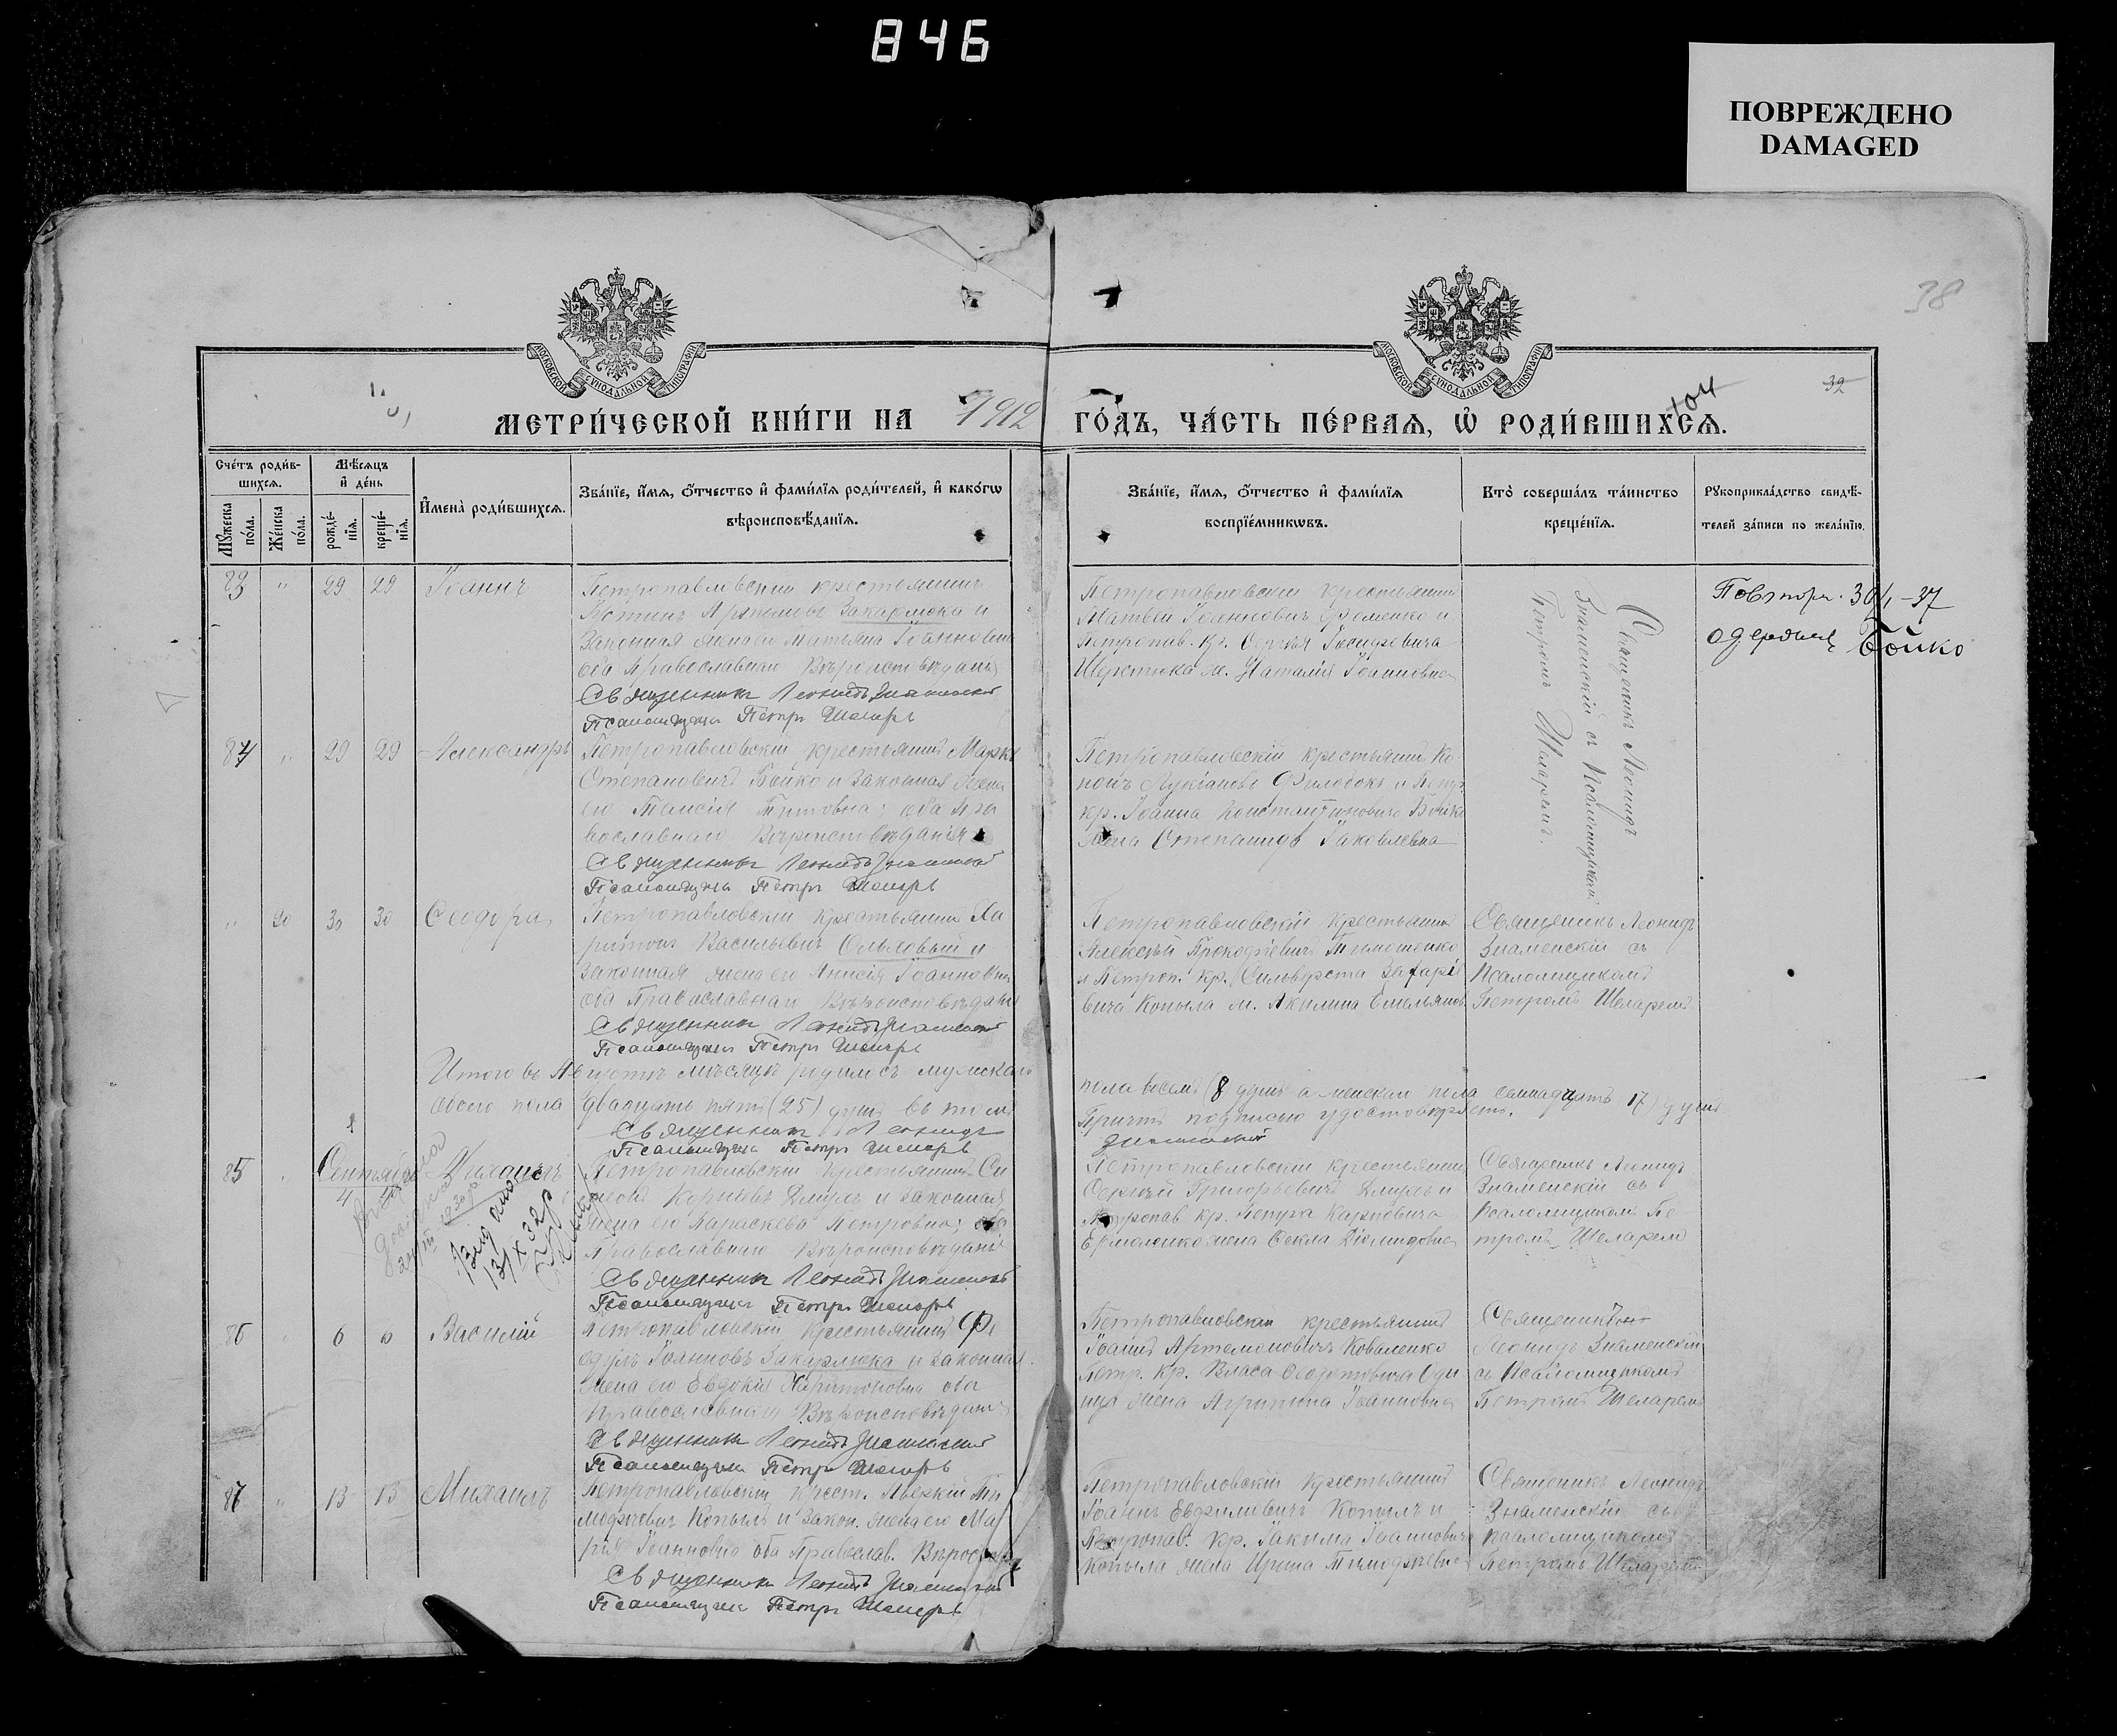 846
ПОВРЕЖДЕНО
DAMAGED
38
МОСКОВСКОЙ СѴНОДАЛЬНОЙ ТИПОГРАФІИ
МОСКОВСКОЙ СѴНОДАЛЬНОЙ ТИПОГРАФІИ
104
32
МЕТРИ́ЧЕСКОЙ КНИ́ГИ НА 1912 ГО́ДЪ, ЧА́СТЬ ПЕ́РВАѦ, Ѡ҆ РОДИ́ВШИХСѦ.
Счéтъ роди́в-
шихсѧ.
Мѣ́сѧцъ
и҆ дéнь
Мꙋ́жеска
по́ла.
Же́нска
по́ла.
рожде́-
нїѧ.
креще́-
нїѧ.
И҆мена̀ роди́вшихсѧ.
Зва́нїе, и҆́мѧ, ѻ҆́тчество и҆ фами́лїѧ роди́телей, и҆ како́гѡ
вѣроисповѣ́данїѧ.
Зва́нїе, и҆́мѧ, ѻ҆́тчество и҆ фами́лїѧ
воспрїе́мникѡвъ.
Кто̀ соверша́лъ та́инство
креще́нїѧ.
Рꙋкоприкла́дство свидѣ́-
телей за́писи по жела́нїю.
83 " 29 29 Іоаннъ
Петропавловскій крестьянинъ
Закарлюка и
Законная жена его Татьяна Іоанновна
оба православнаго Вѣроисповѣданія
Священникъ Леонидъ Знаменскій
Псаломщикъ Петръ Шеларь
Петропавловскій крестьянинъ
Матвей Іоанновичъ Фоменко и
Петропав. кр. Сергѣя Іосифовича
Шерстюка ж. Наталія Іоанновна
Священникъ Леонидъ
Знаменскій съ Псаломщикомъ
Петромъ Шеларемъ.
Повторн. 30/1-37
одержав Бойко
84 " 29 29 Александръ
Петропавловскій крестьянинъ Маркъ
Степановичъ Бойко и Законная жена
его Таисія Титовна; оба пра
вославнаго Вѣроисповѣданія
Священникъ Леонидъ Знаменскій
Псаломщикъ Петръ Шеларь
Петропавловскій крестьянинъ Ко
нонъ Лукіановъ и Петр.
кр. Іоанна Константиновича Бойко
жена Степанида Іаковлевна
" 20 30 30 Ѳеодора
Петропавловскій крестьянинъ Ха
ритонъ Васильевичъ и
законная жена его Анисія Іоанновна
оба Православнаго Вѣроисповѣданія
Священникъ Леонидъ Знаменскій
Псаломщикъ Петръ Шеларь
Петропавловскій крестьянинъ
Алексѣй Прокофіевичъ Тимошенко
и Петроп. кр. Сильверста Захаріе
вича Копыла ж. Акилина Емельянов.
Священникъ Леонидъ
Знаменскій съ
Псаломщикомъ
Петромъ Шеларемъ
Итого въ Августѣ мѣсяцѣ родилось мужскаго пола восемь (8 душъ а женскаго пола семнадцать 17) душъ
обоего пола двадцать пять (25) душъ въ томъ Причтъ подписью удостовѣряетъ.
Священникъ Леонидъ Знаменскій
Псаломщикъ Петръ Шеларь
Сентябрь
85 " 4 4 Михаилъ
Петропавловскій крестьянинъ Си
меонъ Корніевъ и законная
жена его Параскева Петровна; оба
православнаго Вѣроисповѣданія
Священникъ Леонидъ Знаменскій
Псаломщикъ Петръ Шеларь
Петропавловскій крестьянинъ
Сергѣй Григорьевичъ и
Петропав. кр. Петра Карповича
Ермоленко жена Ѳекла Діомидовна
Священникъ Леонидъ
Знаменскій съ
Псаломщикомъ Пе
тромъ Шеларемъ
13/IX 32 р
86 " 6 6 Василій
Петропавловскій крестьянинъ Ѳе
одулъ Іоанновъ Закарлюка и законная
жена его Евдокія Харитоновна оба
православнаго Вѣроисповѣданія
Священникъ Леонидъ Знаменскій
Псаломщикъ Петръ Шеларь
Петропавловскій крестьянинъ
Іоаннъ Артемоновичъ Коваленко
Петр. кр. Власа Ѳеодотовича Оди
нца жена Агрипина Іоанновна
Священникъ
Леонидъ Знаменскій
съ Псаломщикомъ
Петромъ Шеларемъ
87 " 13 13 Михаилъ
Петропавловскій крест. Аверкій Ти
мофѣевичъ Копылъ и Закон. жена его Ма
рія Іоанновна оба Православ. Вѣроиспов.
Священникъ Леонидъ Знаменскій
Псаломщикъ Петръ Шеларь
Петропавловскій крестьянинъ
Іоаннъ Копылъ и
Петропав. кр. Іакима Іоанновича
Копыла жена Ирина Тимофѣевна
Священникъ Леонидъ
Знаменскій съ
Псаломщикомъ
Петромъ Шеларемъ